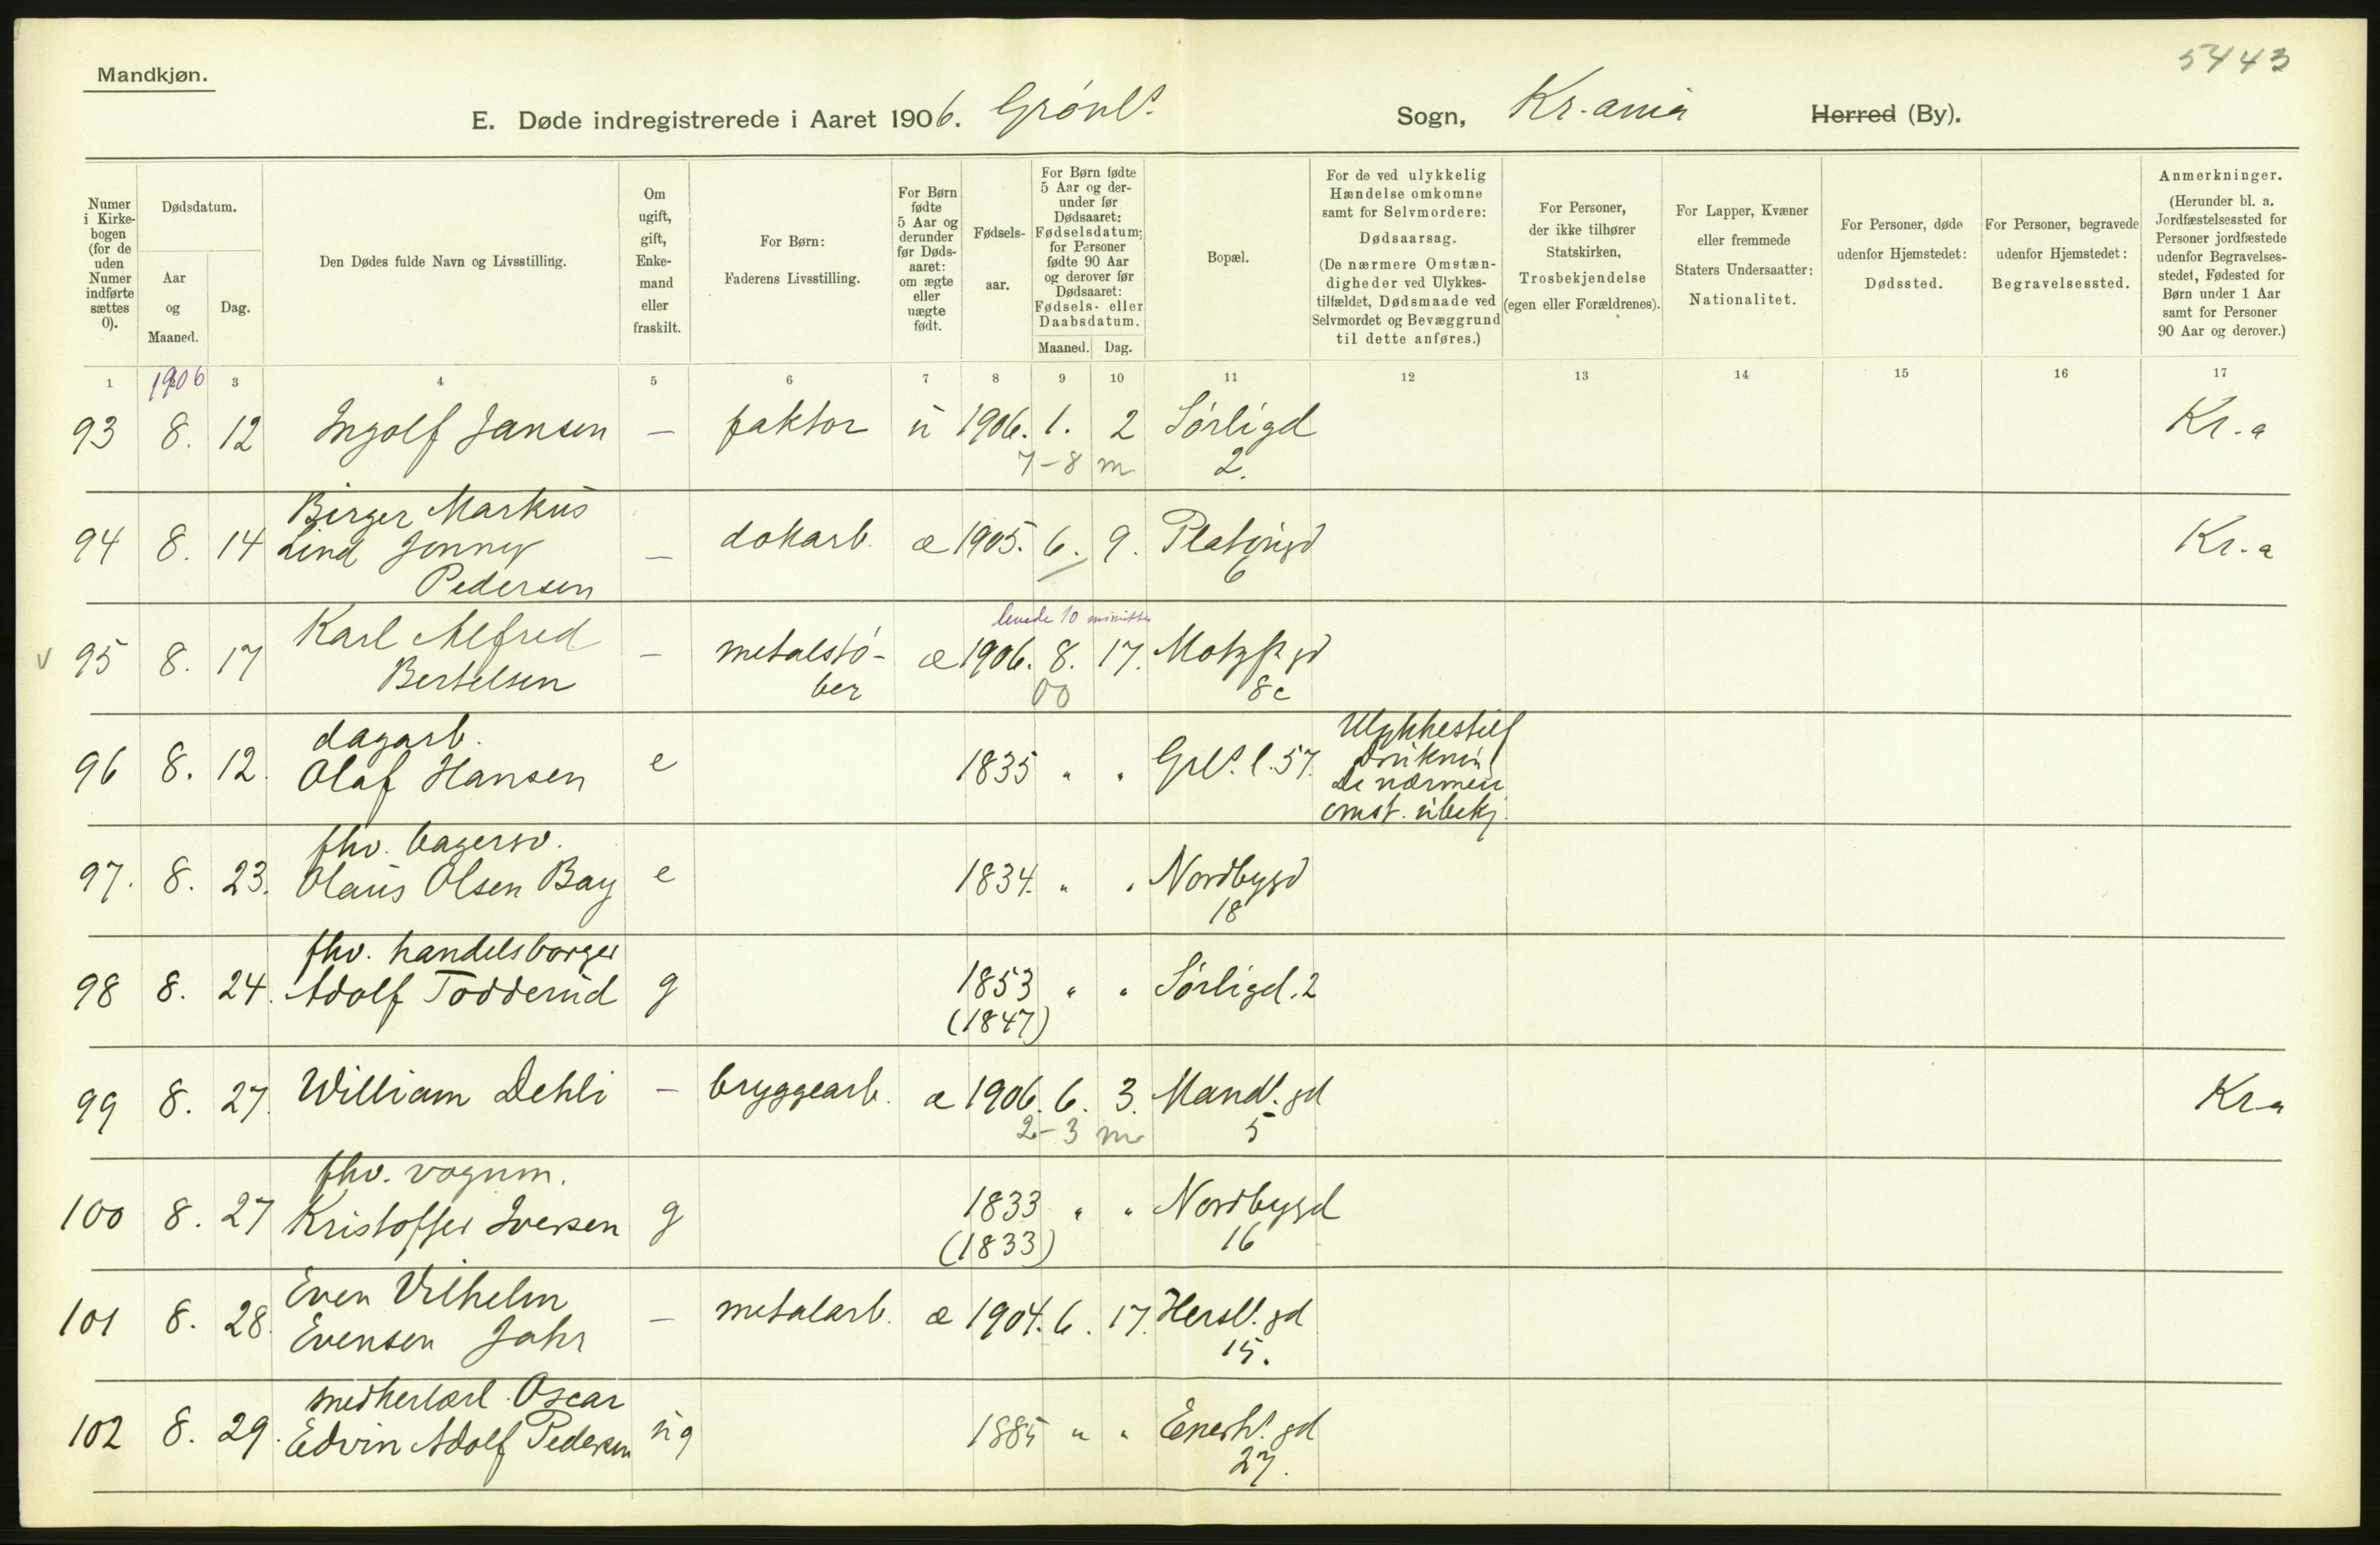 5443
Mandkjøn.
E. Døde indregistrerede i Aaret 1906. Grønl. Sogn, Kr.ania Herred (By).
Numer i Kirkebogen (for de uden Numer indførte sættes 0).
Dødsdatum.
Aar og Maaned.
Dag.
Den Dødes fulde Navn og Livsstilling.
Om ugift, gift, Enkemand eller fraskilt.
For Børn: Faderens Livsstilling.
For Børn fødte 5 Aar og derunder før Dødsaaret: om ægte eller uægte født.
Fødselsaar.
For Børn fødte 5 Aar og derunder før Dødsaaret: Fødselsdatum; for Personer fødte 90 Aar og derover før Dødsaaret: Fødsels- eller Daabsdatum.
Maaned. Dag.
Bopæl.
For de ved ulykkelig Hændelse omkomne samt for Selvmordere: Dødsaarsag. (De nærmere Omstændigheder ved Ulykkestilfældet, Dødsmaade ved Selvmordet og Bevæggrund til dette anføres.)
For Personer, der ikke tilhører Statskirken, Trosbekjendelse (egen eller Forældrenes).
For Lapper, Kvæner eller fremmede Staters Undersaatter: Nationalitet.
For Personer, døde udenfor Hjemstedet: Dødssted.
For Personer, begravede udenfor Hjemstedet: Begravelsessted.
Anmerkninger. (Herunder bl. a. Jordfæstelsessted for Personer jordfæstede udenfor Begravelsesstedet, Fødested for Børn under 1 Aar samt for Personer 90 Aar og derover.)
1 1906 3 4 5 6 7 8 9 10 11 12 13 14 15 16 17
93 8. 12 Ingolf Jansen — faktor u 1906. 1. 2 Sørligd Kr.a
7-8 m 2.
Birger Markus
94 8. 14 Lind Jonny — dokarb. æ 1905. 6. 9. Platougd Kr.a
Pedersen 6
levede 10 minutter
v 95 8. 17 Karl Alfred — metalstø- æ 1906. 8. 17. Motzf. gd
Bertelsen ber 00 8c
dagarb. Ulykkestilf
96 8. 12. Olaf Hansen e 1835 " " Grl. l. 57. Drukning
De nærmere
omst. ubekj.
fhv. bagersv.
97. 8. 23. Olaus Olsen Bay e 1834. " " Nordbygd
18
fhv. handelsborger
98 8. 24. Adolf Todderud g 1853 " " Sørligd. 2
(1847)
99 8. 27. William Dehli — bryggearb. æ 1906. 6. 3. Mand. gd Kr.a
2-3 m 5
fhv. vognm.
100 8. 27 Kristoffer Iversen g 1833 " " Nordbygd
(1833) 16
Even Vilhelm
101 8. 28. Evensen Jahr — metalarb. æ 1904. 6. 17. Hersl. gd
15.
snedkerlærl. Oscar
102 8. 29. Edvin Adolf Pedersen ug 1885 " " Enerh. gd
27.